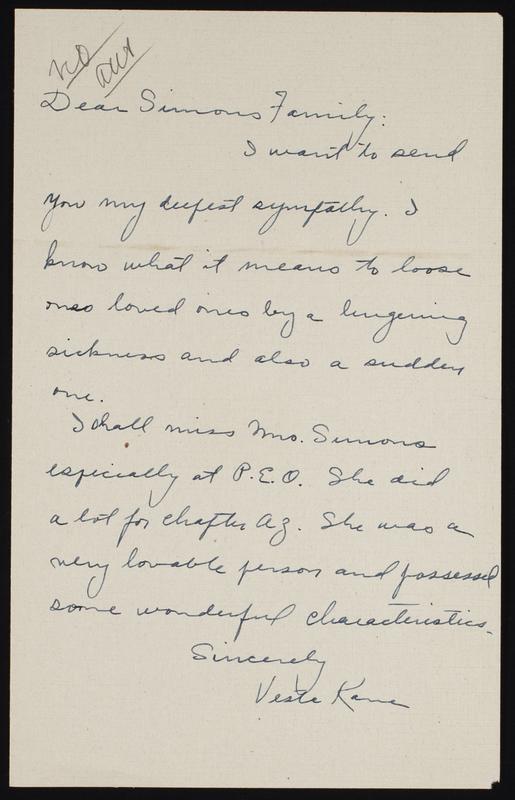 no
ans
Dear Simons Family:
I want to send
you my deepest sympathy. I
know what it means to loose
ones loved ones by a lingering
sickness and also a sudden
one.
I shall miss Mrs. Simons
especially at P.E.O. She did
a lot for chapter A.Z. She was a
very lovable person and possessed
some wonderful characteristics.
Sincerely
Vesta Kane